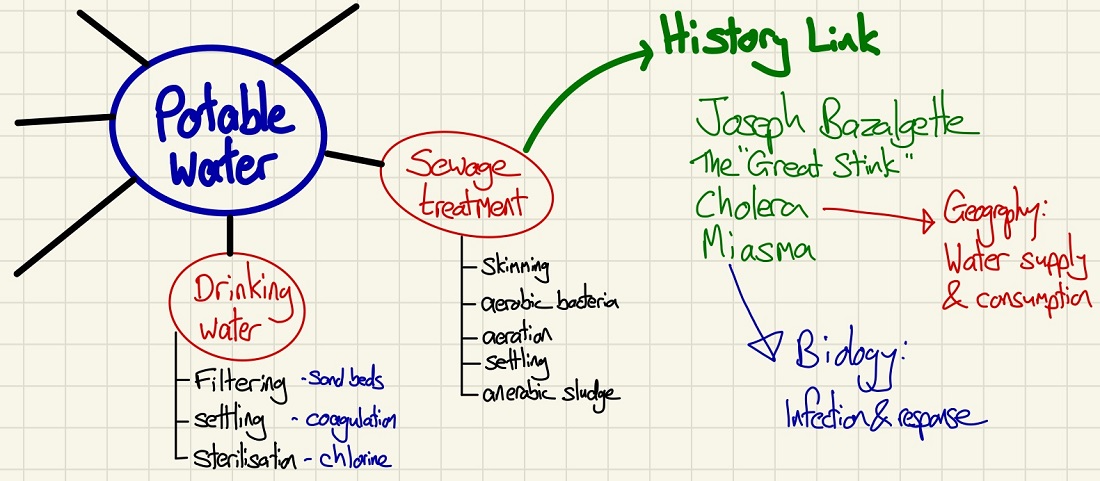 Potable
Water
Drinking
water
Filtering - Sand beds
settling - coagulation
Sterilisation - chlorine
Sewage
treatment
Skimming
aerobic bacteria
aeration
settling
anerobic sludge
History Link
Joseph Bazalgette
The "Great Stink"
Cholera
Miasma
Geography:
Water supply
& consumption
Biology:
Infection & response